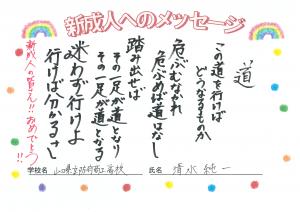 新成人へのメッセージ
道
この道を行けば
どうなるものか
危ぶむなかれ
危ぶめば道はなし
踏み出せば
その一足が道となり
その一足が道となる
迷わず行けよ
行けば分かるさ
新成人の皆さん!!おめでとう!!
学校名 山口県立防府商工高校
氏名 清水純一